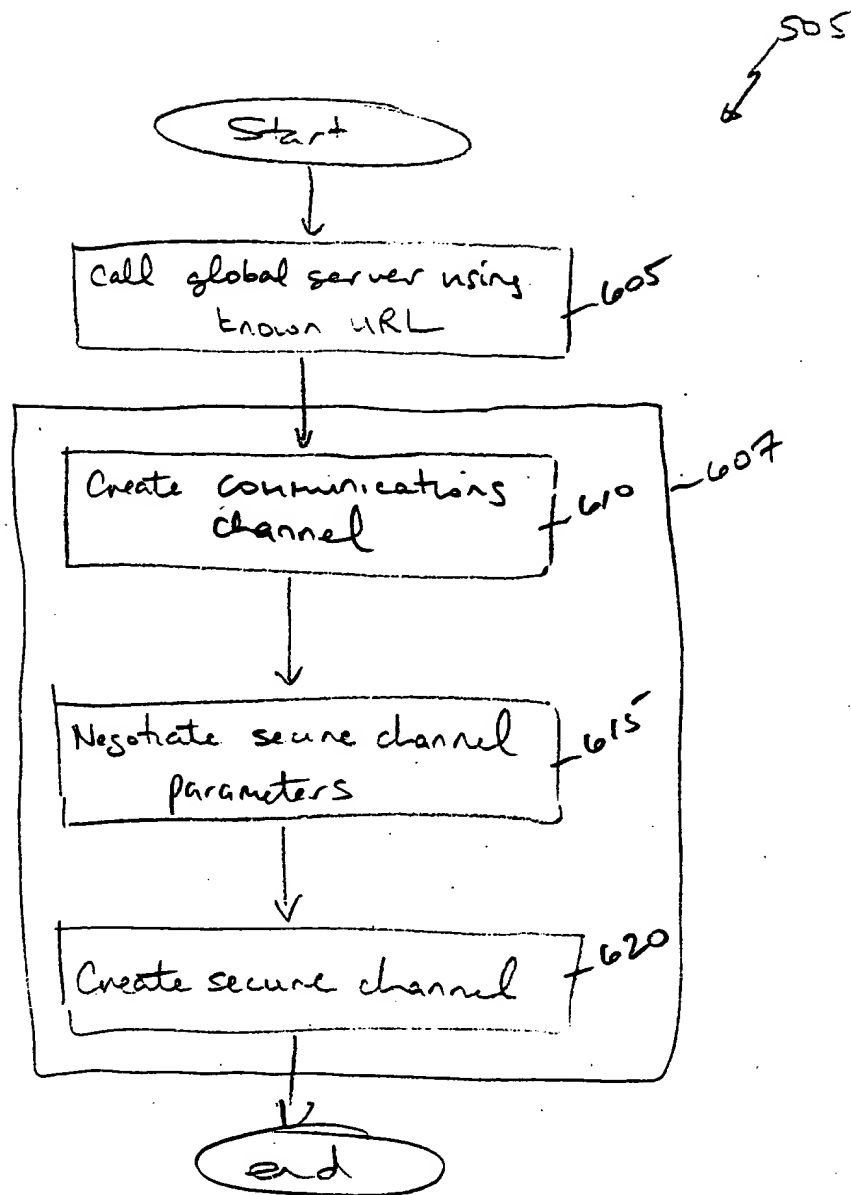 505
Start
Call global server using
known URL
605
607
Create communications
channel
610
Negotiate secure channel
parameters
615
Create secure channel
620
end